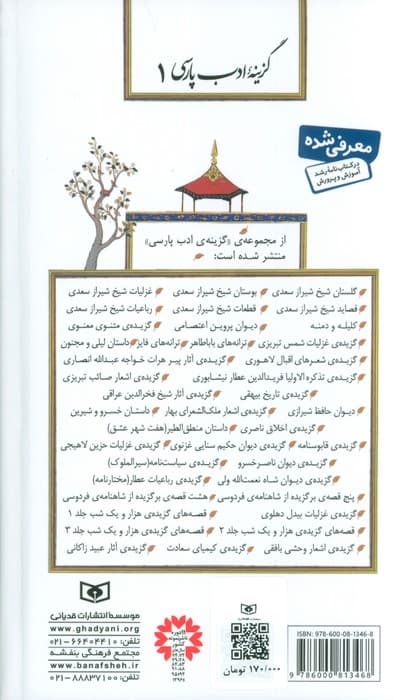 گزینهٔ ادب پارسی ۱
معرفی شده
در کتاب‌نامه رشد
آموزش و پرورش
از مجموعه‌ی «گزینه‌ی ادب پارسی»
منتشر شده است:
گلستان شیخ شیراز سعدی بوستان شیخ شیراز سعدی غزلیات شیخ شیراز سعدی
قصاید شیخ شیراز سعدی قطعات شیخ شیراز سعدی رباعیات شیخ شیراز سعدی
کلیله و دمنه دیوان پروین اعتصامی گزیده‌ی مثنوی معنوی
گزیده‌ی غزلیات شمس تبریزی ترانه‌های باباطاهر ترانه‌های فایز داستان لیلی و مجنون
گزیده‌ی شعرهای اقبال لاهوری گزیده‌ی آثار پیر هرات خواجه عبدالله انصاری
گزیده‌ی تذکره الاولیا فریدالدین عطار نیشابوری گزیده‌ی اشعار صائب تبریزی
گزیده‌ی تاریخ بیهقی گزیده‌ی آثار شیخ فخرالدین عراقی
دیوان حافظ شیرازی گزیده‌ی اشعار ملک‌الشعرای بهار داستان خسرو و شیرین
گزیده‌ی اخلاق ناصری داستان منطق‌الطیر(هفت شهر عشق)
گزیده‌ی قابوسنامه گزیده‌ی دیوان حکیم سنایی غزنوی گزیده‌ی غزلیات حزین لاهیجی
گزیده‌ی دیوان ناصرخسرو گزیده‌ی سیاست‌نامه(سیرالملوک)
گزیده‌ی دیوان شاه نعمت‌الله ولی گزیده‌ی رباعیات عطار(مختارنامه)
پنج قصه‌ی برگزیده از شاهنامه‌ی فردوسی هشت قصه‌ی برگزیده از شاهنامه‌ی فردوسی
گزیده‌ی غزلیات بیدل دهلوی قصه‌های گزیده‌ی هزار و یک شب جلد ۱
قصه‌های گزیده‌ی هزار و یک شب جلد ۲ قصه‌های گزیده‌ی هزار و یک شب جلد ۳
گزیده‌ی اشعار وحشی بافقی گزیده‌ی کیمیای سعادت گزیده‌ی آثار عبید زاکانی
موسسه انتشارات قدیانی
www.ghadyani.org
تلفن: ۰۲۱-۶۶۴۰۴۴۱۰
مجتمع فرهنگی بنفشه
www.banafsheh.ir
تلفن: ۰۲۱-۸۸۸۳۷۱۰۰
۱۷۰/۰۰۰ تومان
ISBN: 978-600-08-1346-8
9 786000 813468